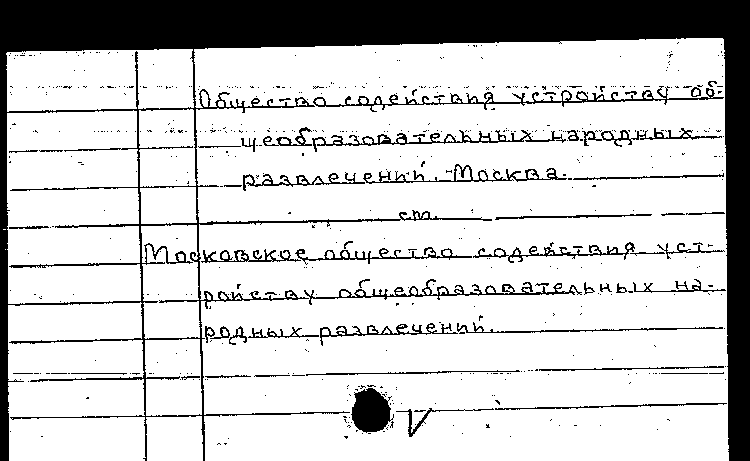 Общество содействия устройству об-
щеобразовательных народных
развлечений. Москва.
см.
Московское общество содействия уст-
ройству общеобразовательных на-
родных развлечений.
V